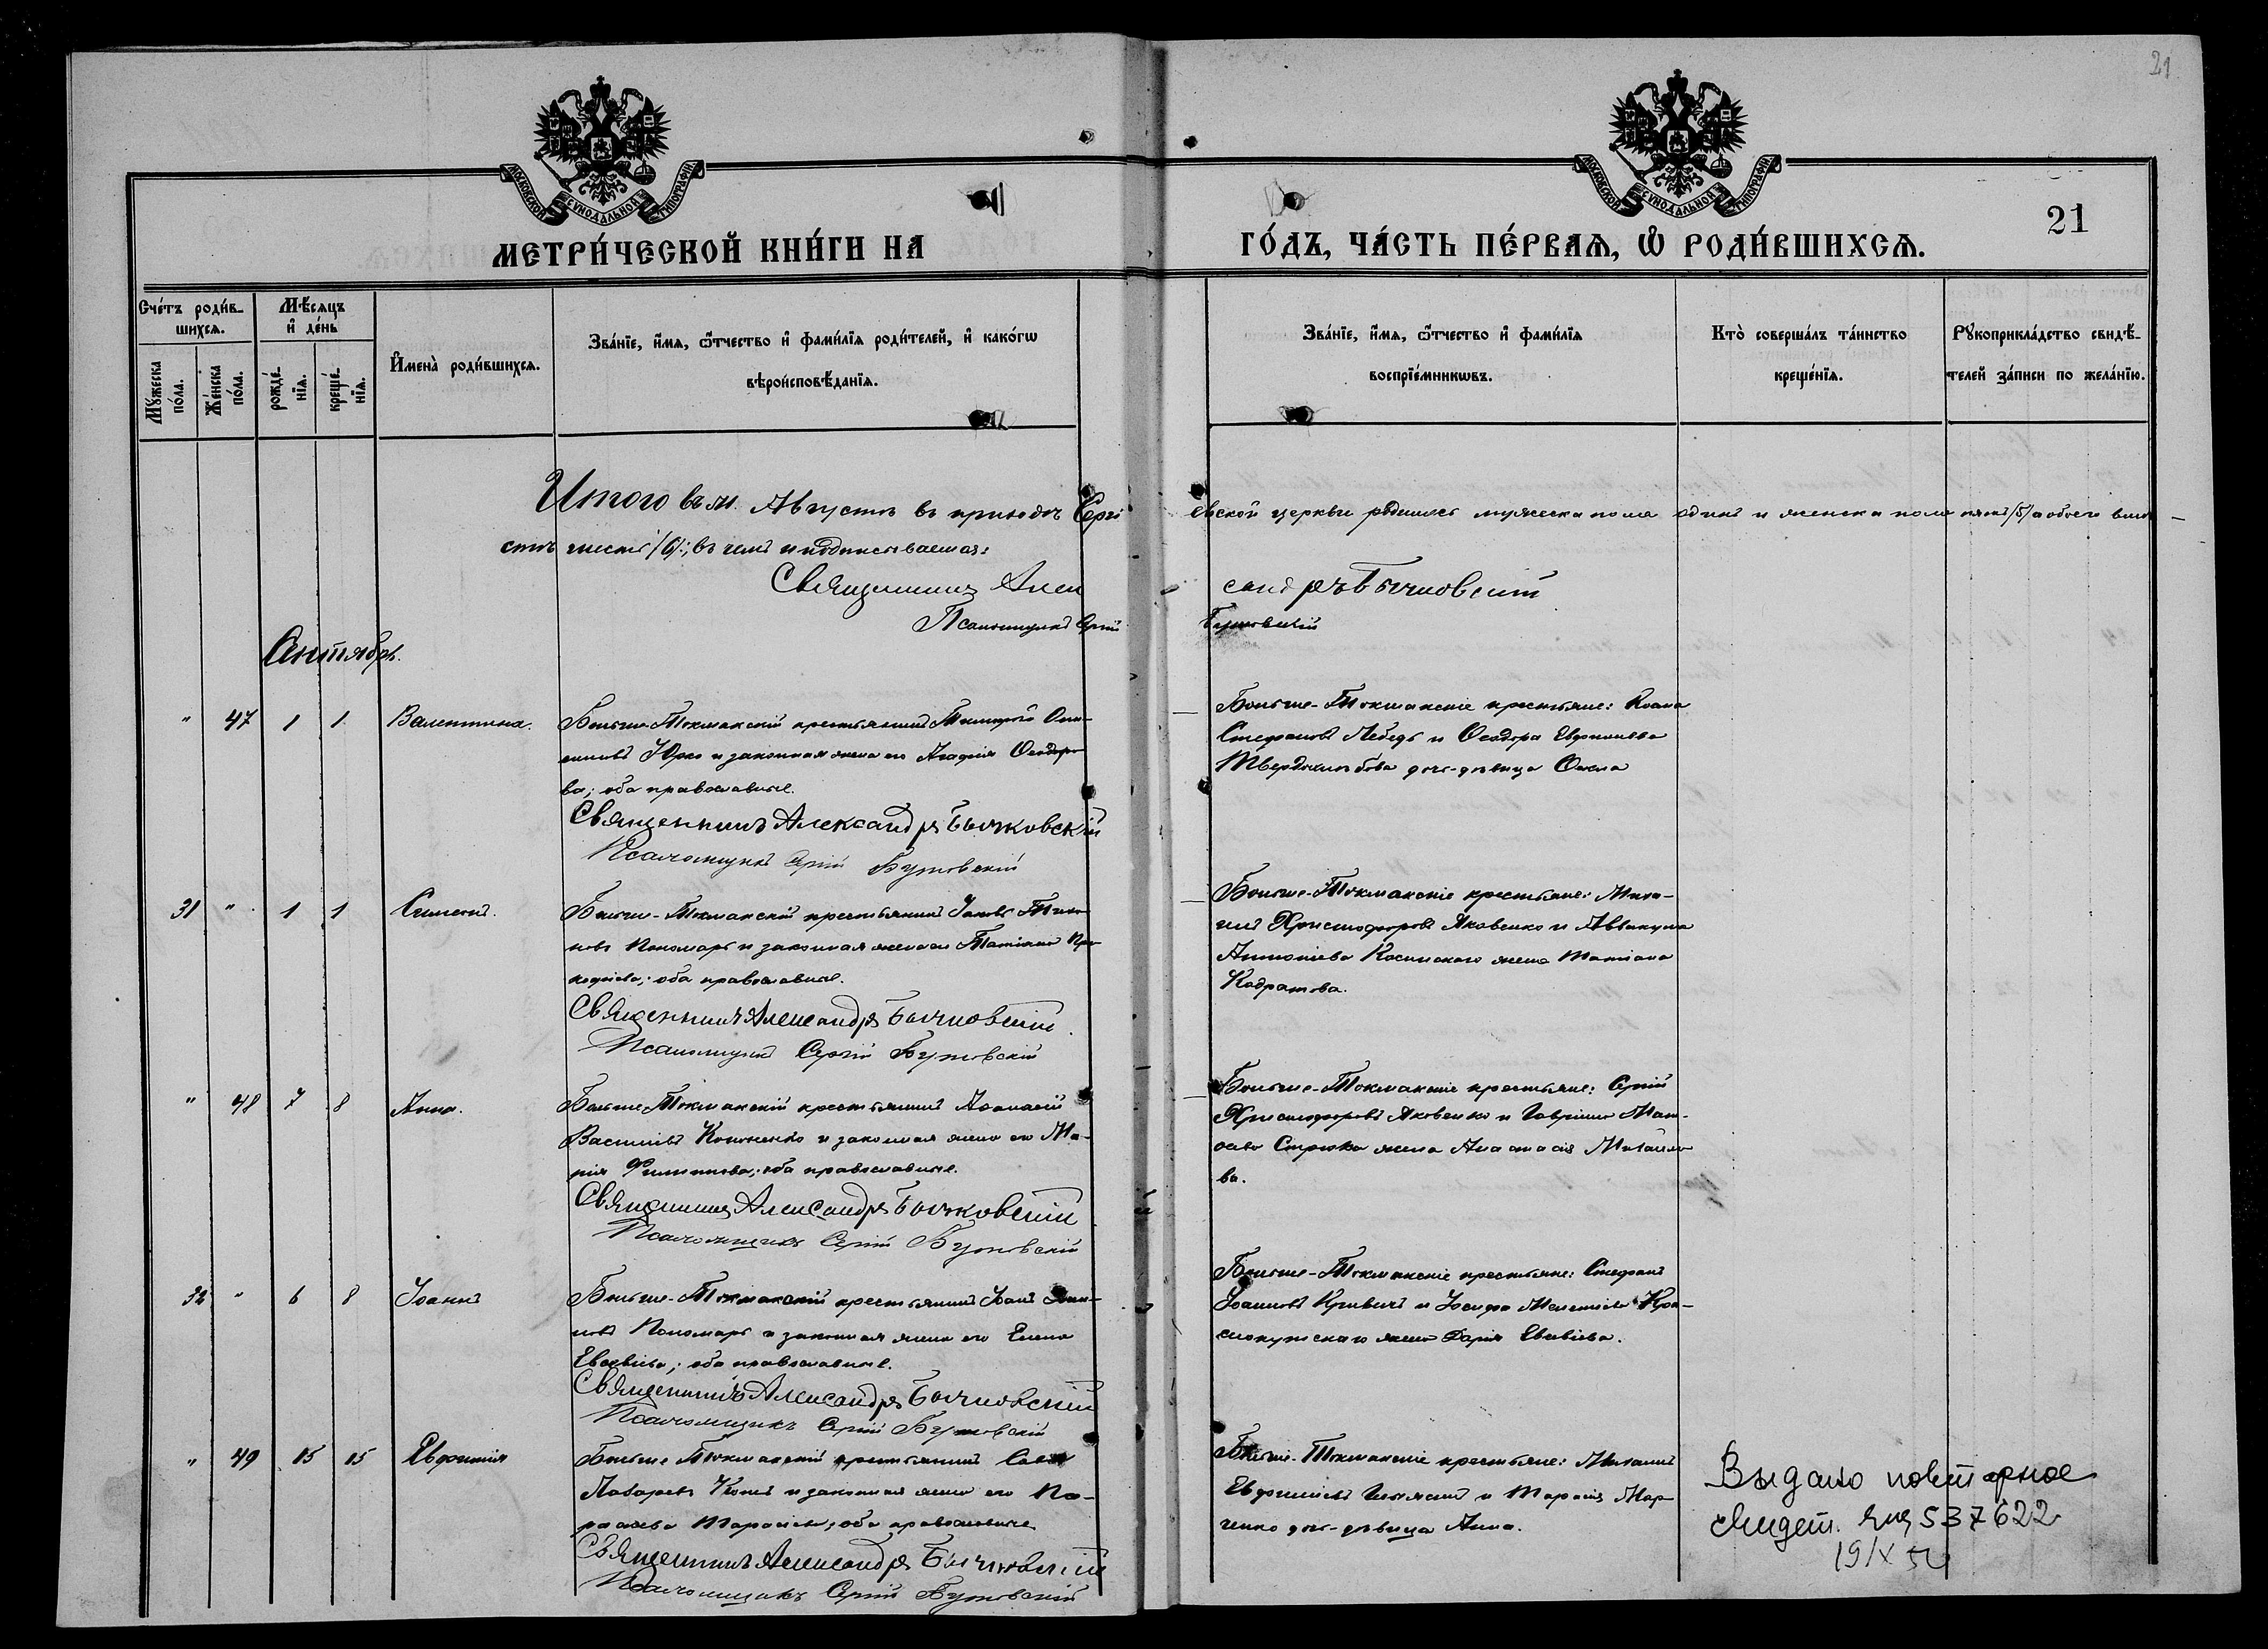 21
МОСКОВСКОЙ СѴНОДАЛЬНОЙ ТИПОГРАФІИ
МОСКОВСКОЙ СѴНОДАЛЬНОЙ ТИПОГРАФІИ
21
МЕТРИ́ЧЕСКОЙ КНИ́ГИ НА
ГО́ДЪ, ЧА́СТЬ ПЕ́РВАЯ, Ѡ҆ РОДИ́ВШИХСЯ.
Сче́тъ роди́в-
шихся.
Мꙋ́жеска по́ла.
Же́нска по́ла.
Мѣ́сяцъ
и҆ де́нь
рожде́-нїя.
креще́-нїя.
И҆мена̀ роди́вшихся.
Зва́нїе, и҆́мя, ѻ҆́тчество и҆ фами́лїя роди́телей, и҆ како́гѡ
вѣроисповѣ́данїя.
Зва́нїе, и҆́мя, ѻ҆́тчество и҆ фами́лїя
воспрїе́мникѡвъ.
Кто̀ соверша́лъ та́инство
креще́нїя.
Рꙋкоприкла́дство свидѣ́-
телей за́писи по жела́нїю.
Итого въ м. Августѣ въ приходѣ Серги
евской церкви родилось мужеска пола одинъ и женска пола пять /5/ а обоего вмѣ-
стѣ шесть /6/; въ чемъ и подписываемся:
Священникъ Алек
сандръ Бычковскій
Псаломщикъ Сергій
Бутовскій
Сентябрь.
" 47 1 1 Валентина.
Больше-Токмакскій крестьянинъ
Юрко и законная жена его Агафія Ѳеодоро
ва; оба православные.
Священникъ Александръ Бычковскій
Псаломщикъ Сергій Бутовскій
Больше-Токмакскіе крестьяне:
Стефановъ Лебедь и Ѳеодора
Твердохлѣбова дочь-дѣвица
31 " 1 1 Симеонъ.
Больше-Токмакскій крестьянинъ Іаковъ
новъ Пономарь и законная жена его Татіана Про
кофіева; оба православные.
Священникъ Александръ Бычковскій
Псаломщикъ Сергій Бутовскій
Больше-Токмакскіе крестьяне: Миха-
илъ Христофоровъ Яковенко и Аввакума
Антоніева жена Татіана
Кодратова.
" 48 7 8 Анна.
Больше-Токмакскій крестьянинъ Аѳанасій
Васильевъ Кононенко и законная жена его Ма-
рія Филиппова; оба православные.
Священникъ Александръ Бычковскій
Псаломщикъ Сергій Бутовскій
Больше-Токмакскіе крестьяне: Сергій
Христофоровъ Яковенко и Гавріила Мат-
ѳеева жена Анастасія Михайло
ва.
32 " 6 8 Іоаннъ
Больше-Токмакскій крестьянинъ
новъ Пономарь и законная жена его Елена
Евсевіева; оба православные.
Священникъ Александръ Бычковскій
Псаломщикъ Сергій Бутовскій
Больше-Токмакскіе крестьяне: Стефанъ
Іоанновъ и Іосифа Мелетіева Кра-
снокутскаго жена Дарія Евсевіева.
" 49 15 15 Евфимія
Больше-Токмакскій крестьянинъ Савва
Лазаревъ и законная жена его Па-
раскева Тарасіева; оба православные.
Священникъ Александръ Бычковскій
Псаломщикъ Сергій Бутовскій
Больше-Токмакскіе крестьяне: Михаилъ
Евфиміевъ и Тарасія Мар-
ченко дочь-дѣвица Анна.
Выдано повторное
свидет. 537622
19/X